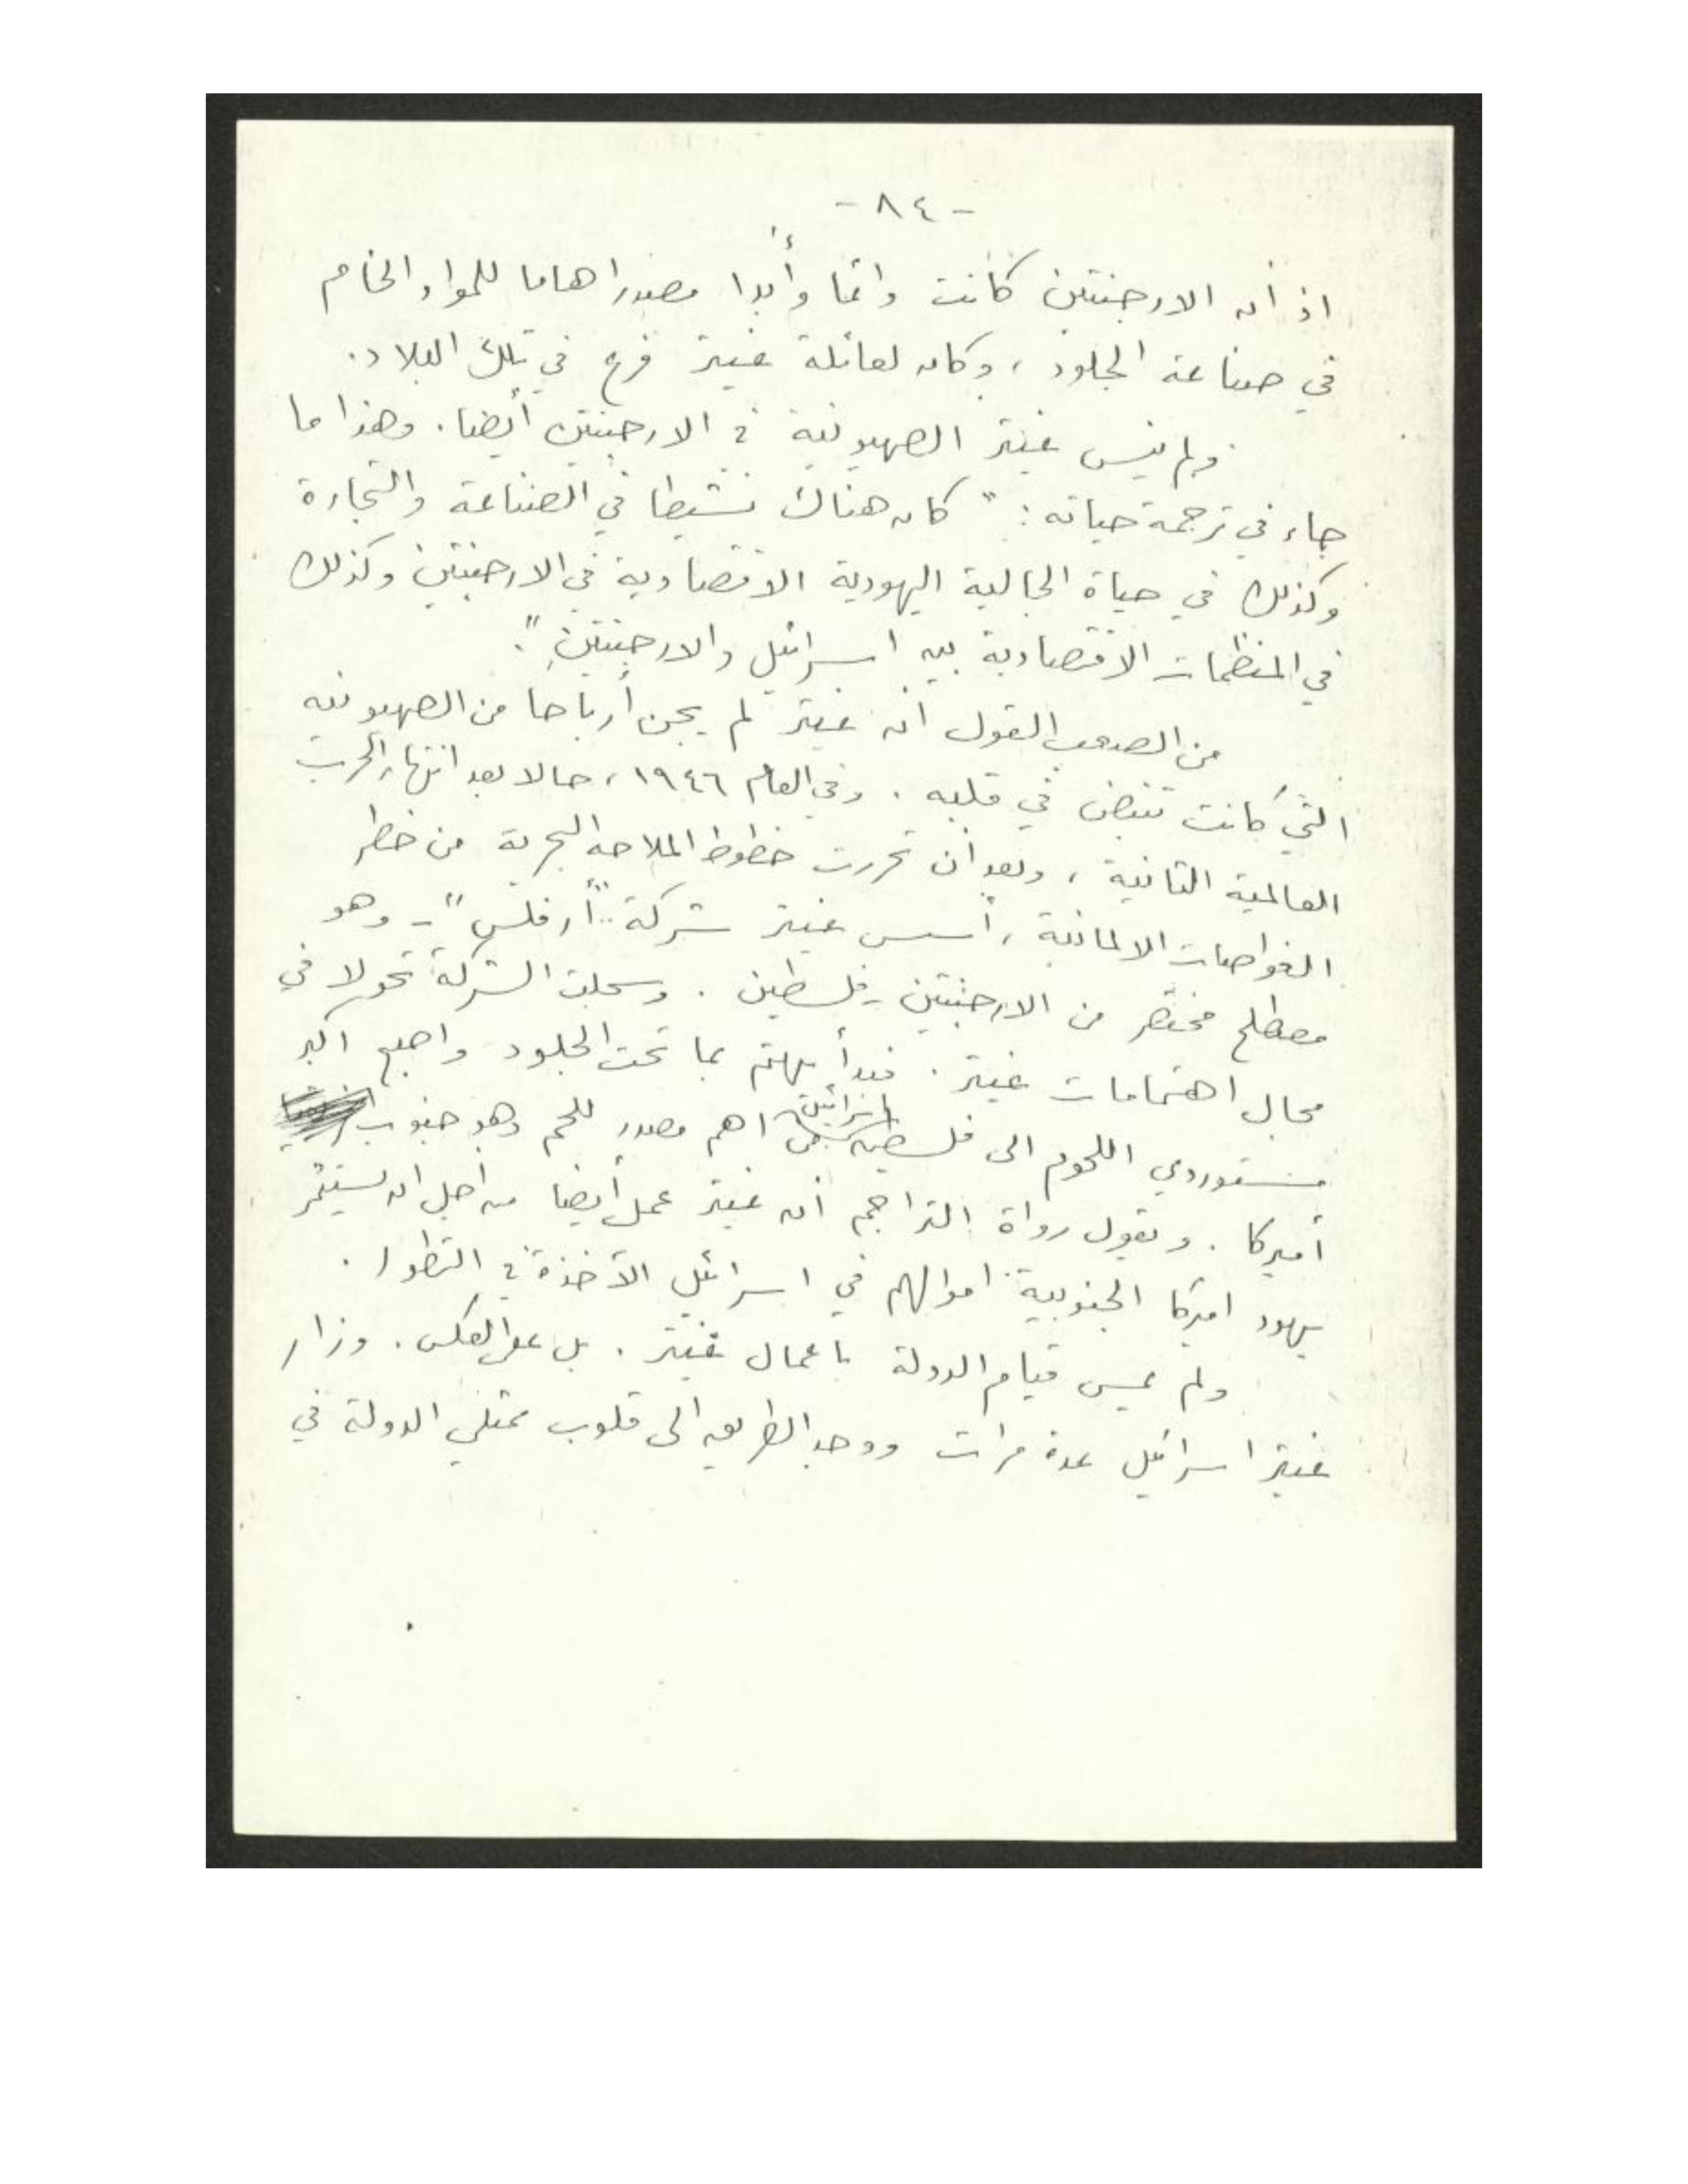 - ٨٤ -
اذ أن الارجنتين كانت دائما وأبدا مصدرا هاما للمواد الخام
في صناعة الجلود ، وكان لعائلة غينر فرع في تلك البلاد .
ولم ينس غينر الصهيونية في الارجنتين أيضا . وهذا ما
جاء في ترجمة حياته : " كان هناك نشيطا في الصناعة والتجارة
وكذلك في حياة الجالية اليهودية الاقتصادية في الارجنتين وكذلك
في المنظمات الاقتصادية بين اسرائيل والارجنتين " .
من الصعب القول أن غينر لم يجن أرباحا من الصهيونية
التي كانت تنبض في قلبه . وفي العام ١٩٤٦ ، حالا بعد انتهاء الحرب
العالمية الثانية ، وبعد أن تحررت خطوط الملاحة البحرية من خطر
الغواصات الالمانية ، أسس غينر شركة " أرفلس " - وهو
مصطلح مختصر من الارجنتين - فلسطين . وسجلت الشركة تحولا في
مجال اهتمامات غينر . فبدأ يهتم بما تحت الجلود واصبح اكبر
مستوردي اللحوم الى فلسطين من اهم مصدر للحم وهو جنوب
أميركا . ويقول رواة التراجم أن غينر عمل أيضا من اجل ان يستثمر
يهود اميركا الجنوبية اموالهم في اسرائيل الآخذة في التطور .
ولم يمس قيام الدولة باعمال غينر . بل على العكس . وزار
غينر اسرائيل عدة مرات ووجد الطريق الى قلوب ممثلي الدولة في